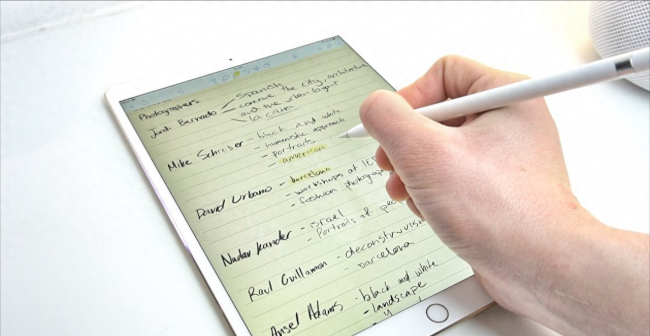 Photographers
Jordi Bernado - Spanish
convine the city, architecture
and the urban layout
la caixa
Mike Schreiber - black and white
- humanistic approach
- portraits
- american
David Urbano - barcelona
- workshops at IE
- fashion photograp
Nadav Kander - israel
- Portraits of pe
Raul Guillamon - deconstruvism
- barcelona
Ansel Adams - black and white
- landscape